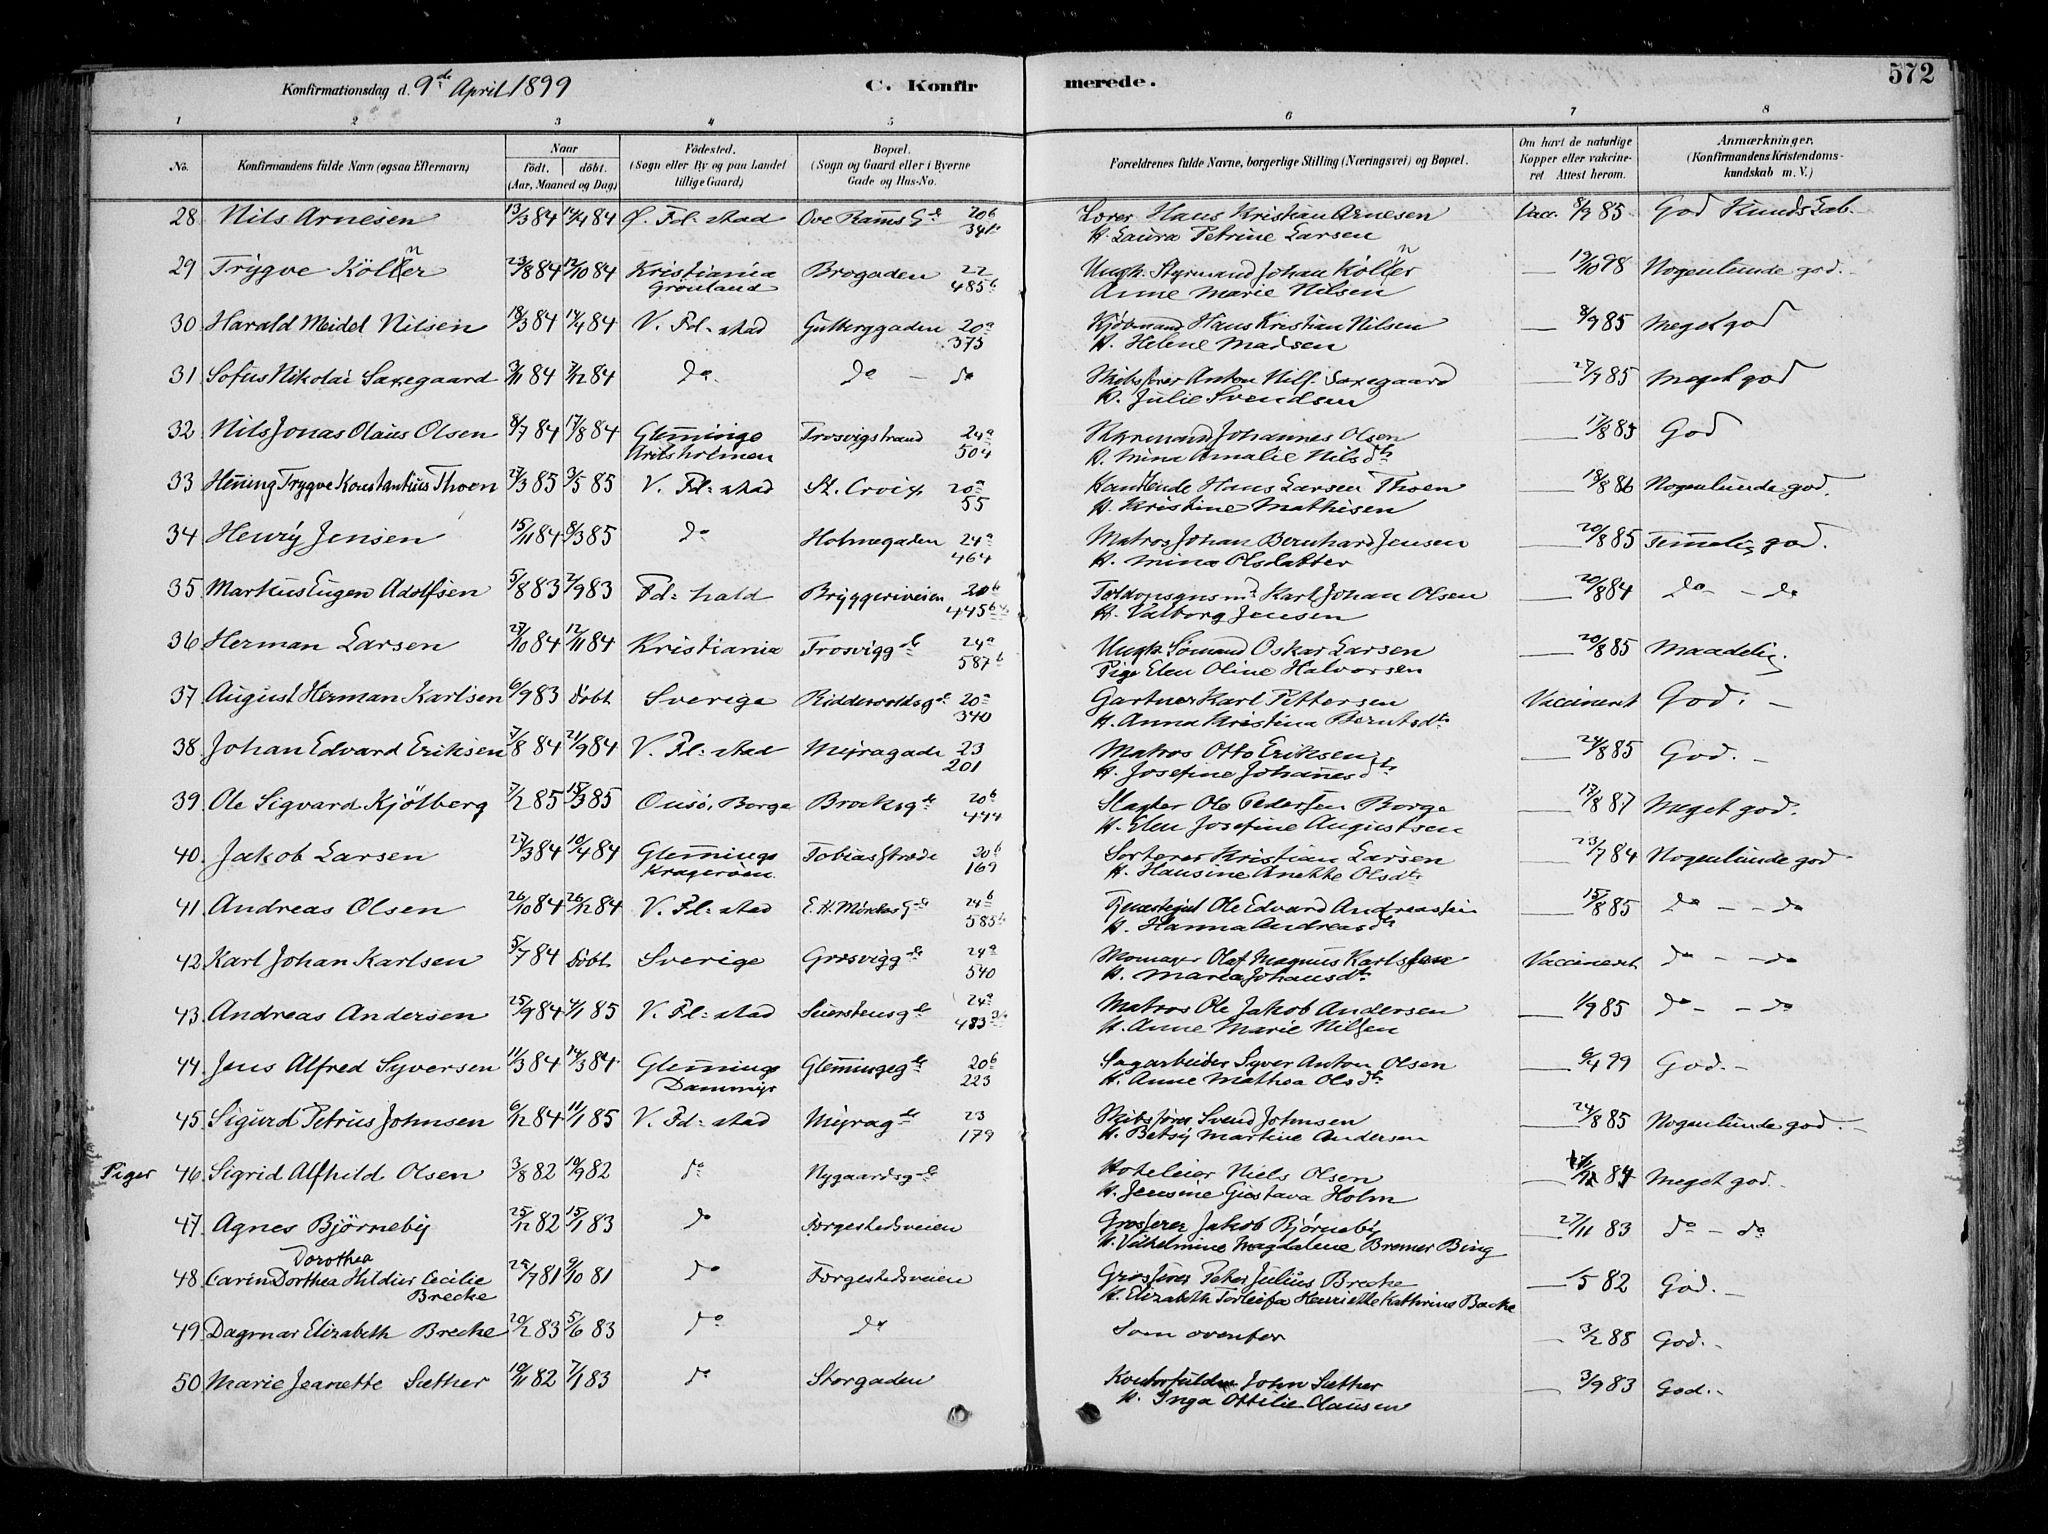 Konfirmationsdag d. 9de April 1899 C. Konfirmerede. 572
1 2 3 4 5 6 7 8
No. Konfirmandens fulde Navn (ogsaa Efternavn) Naar født. døbt. (Aar, Maaned og Dag) Fødested. (Sogn eller By og paa Landet tillige Gaard) Bopæl. (Sogn og Gaard eller i Byerne Gade og Hus-No. Forældrenes fulde Navne, borgerlige Stilling (Næringsvei) og Bopæl. Om havt de naturlige Kopper eller vaccineret Attest herom. Anmærkninger. (Konfirmandens Kristendomskundskab m. V.)
28 Nils Arnesen 13/3 84 84 Ø. Fd:stad Ove Rams Gd 20b Hans Kristian Arnesen Vacc. 8/9 85. God Kundskab.
H. Laura Petrine Larsen
29 Trygve 23/8 84 12/10 84 Kristiania Brogaden 22 Ungk. Styrmand Johan — 19/10 98 Nogenlunde god.
Grønland 485b Anne Marie Nilsen
30 Harald Meidel Nilsen 18/3 84 14/4 84 V. Fd:stad Gutteryggaden 20a Kjøbmand Hans Kristian Nilsen — 8/9 85 Meget god
375 H. Helene Madsen
31 Sofus Nikolai Saxegaard 3/11 84 7/12 84 do do - do Skibsfører Anton Nilf. Saxegaard — 27/7 85 Meget god
H. Julie Svendsen
32 Nils Jonas Olaus Olsen 8/7 84 17/8 84 Glemminge Trosvigstrand 24a Styrmand Johannes Olsen — 17/8 85 God
504 H. Mina Amalie Nilsdtr
33 Henning Trygve Konstantius Thoen 27/3 85 3/5 85 V. Fd:stad St. Croix 20a Handlende Hans Larsen Thoen — 18/8 86 Nogenlunde god.
55 H. Kristine Mathisen
34 Henry Jensen 15/11 84 8/3 85 do Holmegaden 24a Matros Johan Bernhard Jensen — 20/8 85 Temmelig god.
464 H. Mina Olsdatter
35 Markus Eugen Adolfsen 5/8 83 2/9 83 Fd:hald Bryggeriveien 20b Toldopsynsmd Karl Johan Olsen — 20/8 84 do - do
445b H. Valborg Jensen
36 Herman Larsen 27/10 84 12/11 84 Kristiania Trosvigg de 24a Ungk. Sømand Oskar Larsen — 20/8 85 Maadelig.
587b Pige Elen Oline Halvorsen
37 August Herman Karlsen 6/9 83 Døbt Sverige Riddervoldsgd. 20a Gartner Karl Pettersen Vaccineret God. -
340 H. Anna Kristina Berntsdtr
38 Johan Edvard Eriksen 3/8 84 21/9 84 V. Fd:stad Mejragade 23 Matros Otto Eriksen — 24/8 85 God. -
201 H. Josefine Johannesdtr
39 Ole Sigvard Kjölberg 7/2 85 15/3 85 Onsö, Borge Brocksgde 20b Slagter Ole Pedersen Borge — 17/8 87 Meget god.
444 H. Elen Josefine Augustsen
40. Jakob Larsen 27/3 84 10/4 84 Glemminge Tobiasstræde 20b Sorterer Kristian Larsen — 23/7 84 Nogenlunde god
Kragerøen. 169 H. Hansine Anette Olsdtr
41. Andreas Olsen 26/10 84 26/12 84 V. Fd:stad 24b Ole Edvard Andreassen — 15/8 85 do - - do
585b H. Hanna Andreasdtr
42 Karl Johan Karlsen 5/7 84 Døbt Sverige Grøsvigg de 24a Skomager Olaf Magnus Karlssen Vaccineret do - - do
540 H. Maria Johansdtr
43. Andreas Andersen 25/9 84 4/1 85 V. Fd:stad 24a Matros Ole Jakob Andersen — 1/9 85 do - - do
483 H. Anne Marie Nilsen
44. Jens Alfred Syversen 11/3 84 14/3 84 Glemminge Glemmingegde 20b Sagarbeider Syver Anton Olsen — 6/4 99 God. -
Dammyr 223 H. Anne Mathea Olsdtr
45. Sigurd Petrus Johnsen 6/12 84 11/1 85 V. Fd:stad Mejrag de 23 Skibsfører Svend Johnsen — 24/8 85 Nogenlunde god. -
179 H. Betsy Martine Andersen
Piger 46. Sigrid Alfhild Olsen 3/8 82 10/9 82 do Nygaardsgde Hoteleier Niels Olsen — 84 Meget god.
H. Jensine Gustava Holm
47. Agnes Bjørneby 25/12 82 15/1 83 do Færgestedsveien Grosserer Jakob Bjørneby — 27/11 83 do - do
H. Vilhelmine Magdalene Bremer Bing
Dorothea
48. Carin Dorthea Hildur Cecilie 25/7 81 9/10 81 do Færgestedsveien Grosserer Peter Julius Brecke — 1/5 82 God. -
Brecke H. Elizabeth Torleifa Henriette Kathrine Backe
49. Dagmar Elizabeth Brecke 20/2 83 5/6 83 do do Som ovenfor — 3/2 88 God. -
50 Marie Jeanette Sæther 10/11 82 7/1 83 do Storgaden John Sæther — 3/9 83 God. -
H. Inga Ottilie Clausen